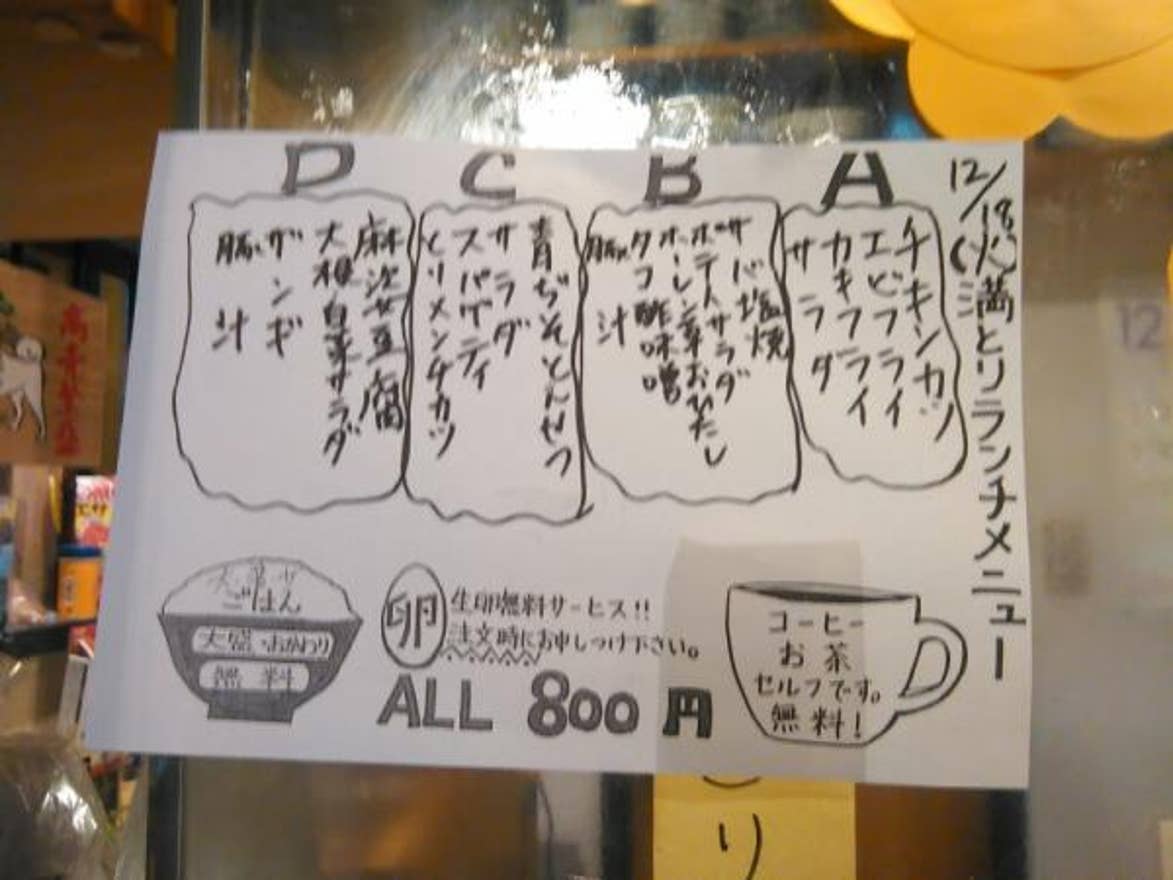 12/18(火)満とりランチメニュー
A
チキンカツ
エビフライ
カキフライ
サラダ
B
サバ塩焼
ポテトサラダ
ホーレン草おひたし
タコ酢味噌
豚汁
C
青じそとんかつ
サラダ
スパゲティ
とりメンチカツ
D
麻婆豆腐
大根白菜サラダ
ザンギ
豚汁
ごはん
大盛・おかわり
無料
卵
生卵無料サービス!!
注文時にお申しつけ下さい。
ALL 800円
コーヒー
お茶
セルフです。
無料!
り